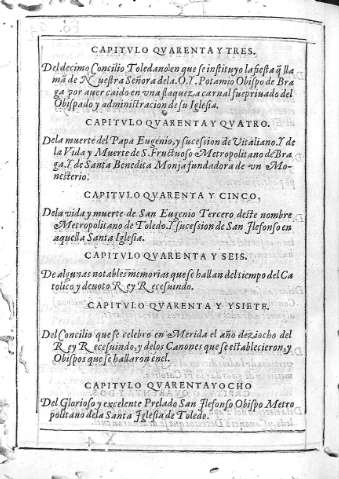 CAPITVLO QVARENTA Y TRES.
Del decimo Concilio Toledano en que se instituyo la fiesta q̃ lla
mã de Nuestra Señora dela .O. Y. Potamio Obispo de Bra
ga por auer caido en vna flaqueza carnal fue priuado del
Obispado y administracion de su Iglesia.
CAPITVLO QVARENTA Y QVATRO.
De la muerte del Papa Eugenio, y sucession de Vitaliano. Y de
la Vida y Muerte de S. Fructuoso Metropolitano de Bra
ga. Y de Santa Benedita Monja fundadora de vn Mo-
nesterio.
CAPITVLO QVARENTA Y CINCO.
De la vida y muerte de San Eugenio Tercero deste nombre
Metropolitano de Toledo. Y sucession de San Ilefonso en
aquella Santa Iglesia.
CAPITVLO QVARENTA Y SEIS.
De algunas notables memorias que se hallan del tiempo del Ca
tolico y deuoto Rey Recesuindo.
CAPITVLO QVARENTA Y YSIETE.
Del Concilio que se celebro en Merida el año deziocho del
Rey Recesuindo, y delos Canones que se establecieron, y
Obispos que se hallaron enel.
CAPITVLO QVARENTA YOCHO
Del Glorioso y excelente Prelado San Ilefonso Obispo Metro
politano dela Santa Iglesia de Toledo.